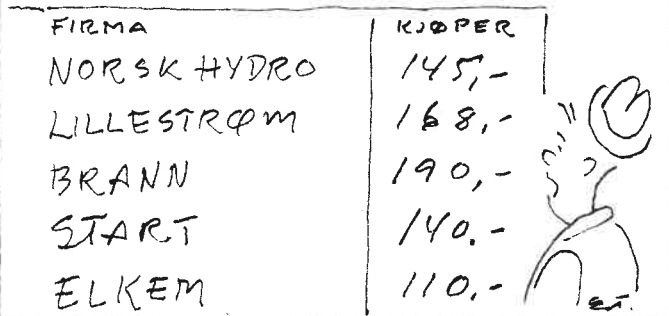 FIRMA KJØPER
NORSK HYDRO 145,-
LILLESTRØM 168,-
BRANN 190,-
START 140.-
ELKEM 110,-